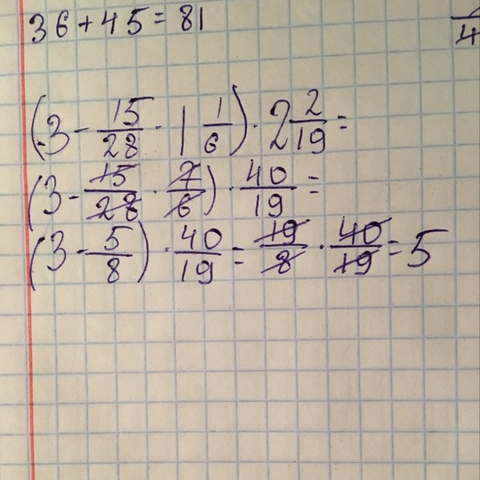 36+45=81
4
(3 - 15/28 · 1 1/6) · 2 2/19 =
(3 - 15/28 · 7/6) · 40/19 =
(3 - 5/8) · 40/19 = 19/8 · 40/19 = 5